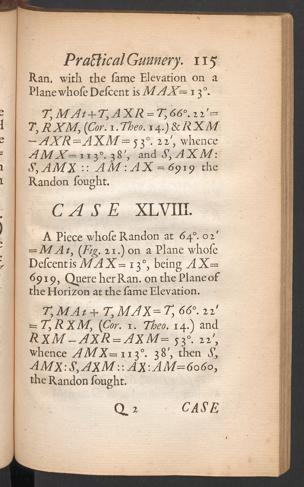 Practical Gunnery. 115
Ran. with the same Elevation on a
Plane whose Descent is MAX = 13°.
T, MAt + T, AXR = T, 66°. 22' =
T, RXM, (Cor. 1. Theo. 14.) & RXM
— AXR = AXM = 53°. 22', whence
AMX = 113°. 38', and S, AXM :
S, AMX :: AM : AX = 6919 the
Randon sought.
CASE XLVIII.
A Piece whose Randon at 64°. 02'
= MAt, (Fig. 21.) on a Plane whose
Descent is MAX = 13°, being AX =
6919, Quere her Ran. on the Plane of
the Horizon at the same Elevation.
T, MAt + T, MAX = T, 66°. 22'
= T, RXM, (Cor. 1. Theo. 14.) and
RXM — AXR = AXM = 53°. 22',
whence AMX = 113°. 38', then S,
AMX : S, AXM :: AX : AM = 6060,
the Randon sought.
Q 2 CASE